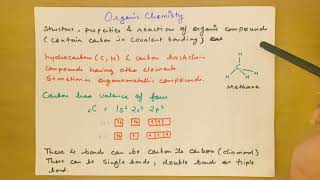 Organic Chemistry
Structure, properties & reaction of organic compounds
(contain carbon in covalent bonding)
hydrocarbon (C, H) & carbon backchain
compounds having other elements
Sometimes organometallic compounds.
H
C
H
H
H
Methane
Carbon has valence of four
6C = 1s² 2s² 2p²
There 4 bonds can be carbon to carbon (diamond)
There can be single bonds, double bonds or triple
bond.